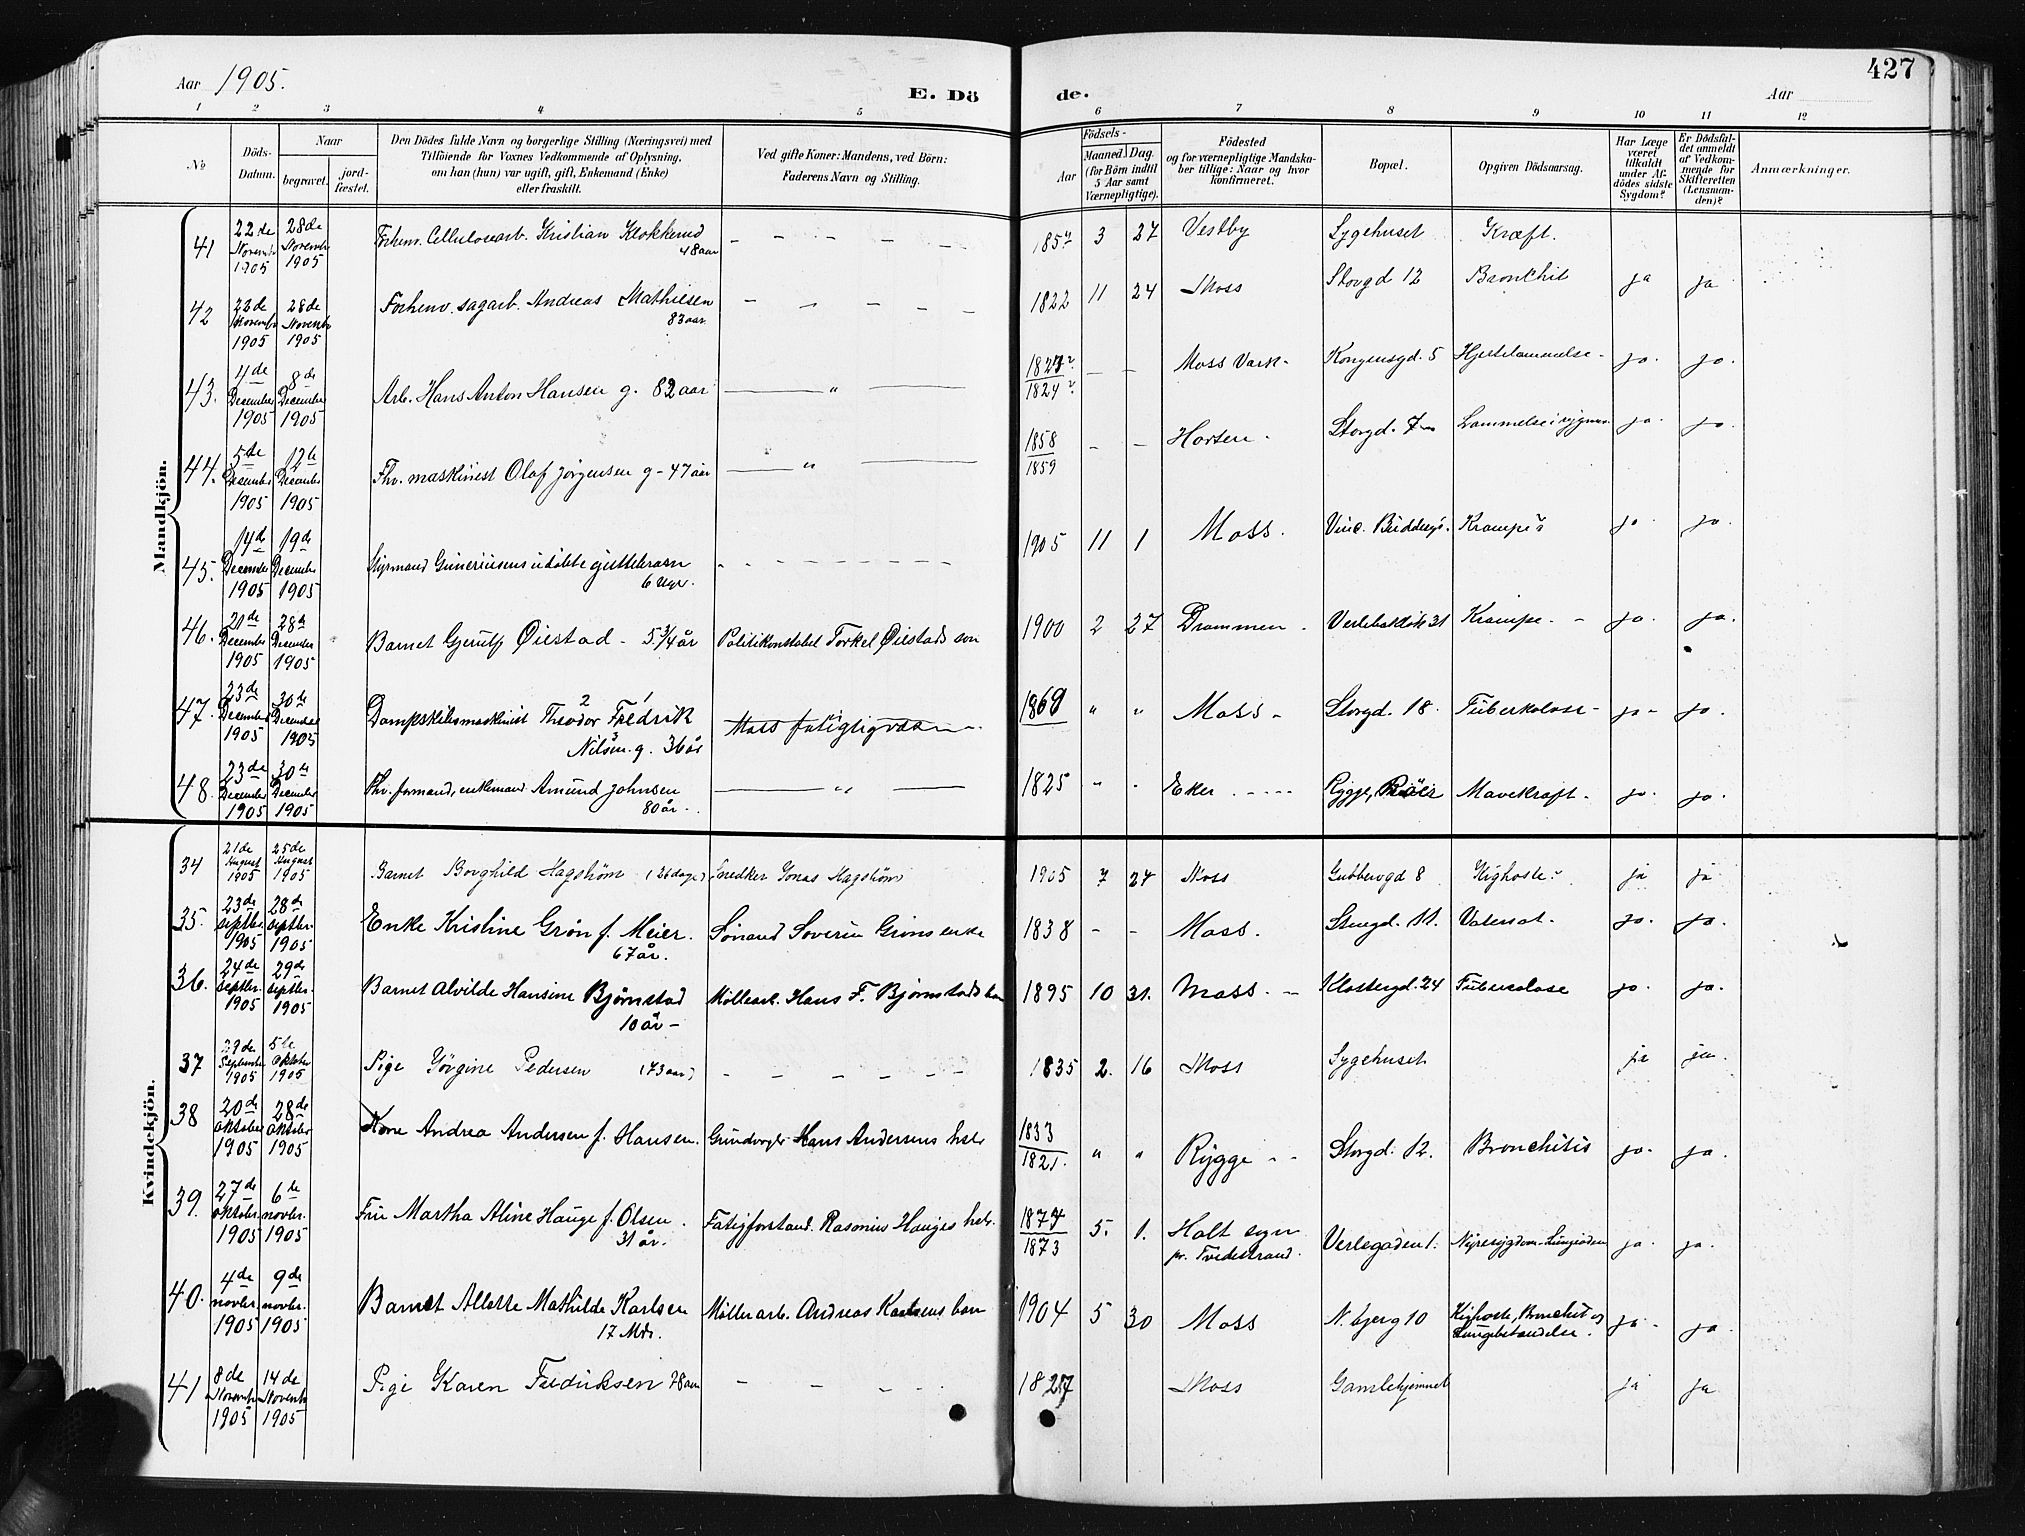 427
Aar 1905.
E. Dö
de.
Aar
1 2 3 4 5 6 7 8 9 10 11 12
No
Döds-
Datum.
Naar
begravet.
jord-
fæstet.
Den Dödes fulde Navn og borgerlige Stilling (Næringsvei) med
Tilföiende for Voxnes Vedkommende af Oplysning,
om han (hun) var ugift, gift, Enkemand (Enke)
eller fraskilt.
Ved gifte Koner: Mandens, ved Börn:
Faderens Navn og Stilling.
Födsels-
Aar
Maaned. Dag.
(for Börn indtil
5 Aar samt
Værnepligtige).
Födested
og for værnepligtige Mandska-
ber tillige: Naar og hvor
konfirmeret.
Bopæl.
Opgiven Dödsaarsag.
Har Læge
været
tilkaldt
under Af-
dödes sidste
Sygdom?
Er Dödsfal-
det anmeldt
af Vedkom-
mende for
Skifteretten
(Lensman-
den)?
Anmærkninger.
Mandkjön.
41 22de Novembr 1905 28de Novembr 1905 Forhenv. Cellulosearb. Kristian Klokkerud 48 aar 1857 3 27 Vestby Sygehuset Kræft.
42 22de Novembr 1905 28de Novembr 1905 Forhenv. sagarb. Andreas Mathiesen 83 aar 1822 11 24 Moss Storgd 12 Bronchit ja ja
43. 4de December 1905 8de December 1905 Arb. Hans Anton Hansen g. 82 aar " 1824? Moss Værk Kongensgd. 5 Hjertelammelse ja. ja.
44. 5te December 1905 12te December 1905 Fhv. maskinist Olaf Jørgensen g- 47 år " 1858 1859 Horten. Storgd. 7 Lammelse i ja. ja.
45. 14de December 1905 19de December 1905 Styrmand udøbte 6 Uger. 1905 11 1 Moss. Krampe ja. ja.
46. 21de December 1905 28de December 1905 Barnet Øiestad - 5 3/4 år Politikonstabel Torkel Øiestads søn 1900 2 27 Drammen 31 Krampe ja. ja.
47. 23de December 1905 30te December 1905 Dampskibsmaskinist Theodor Fredrik 2 1 3 Nilsen g. 36 år Moss fattigvæsen 1869 " " Moss Storgd. 18. Tuberkolose ja ja.
48. 23de December 1905 30te December 1905 Fhv. formand, enkemand Amund Johnsen 80 år. " 1825 Eker Rygge, Mavekræft. ja. ja.
Kvindekjön.
34 21de August 1905 25de August 1905 Barnet Borghild Hagstrøm (26 dage) Snedker Jonas Hagstrøm 1905 7 24 Moss Gubberogd 8 Kighoste ja ja
35. 23de septbr. 1905 28de septbr. 1905 Enke Kristine Grøn f. Meier. 67 år. Sømand Severin Grøns enke 1838 Moss. 11. Vatersot. ja. ja.
36. 24de septbr. 1905 29de septbr. 1905 Barnet Alvilde Hansine Bjørnstad 10 år Møllearb. Hans F. Bjørnstads barn 1895 10 31. Moss. Klostergd. 24 Tuberculose ja. ja.
37 29de September 1905 5te Oktober 1905 Pige Jørgine Pedersen (73 aar) 1835 2 16 Moss Sygehuset ja ja
38 20de oktober 1905 28de oktober 1905 Kone Andrea Andersen f. Hansen. Hans Andersens 1833 1821. " " Rygge Storgd. 12. Bronchitis ja. ja.
39. 27de oktober. 1905 6te novbr. 1905 Fru Martha Aline Hauge f. Olsen. 31 år. Fatigforstand. Rasmus Hauges 1874 1873 5. 1. Holt sogn pr. Tvedestrand. Verlegaden 1. Nyresygdom ja. ja.
40. 4de novbr. 1905 9de novbr. 1905 Barnet Allette Mathilde Karlsen 17 Mdr. Møllerarb. Andreas Karlsens barn 1904 5 30 Moss N. bjerg 10 Kighoste, Bronchit og Lungebetændelse. ja ja
41 8de Novembr 1905 14de Novembr 1905 Pige Karen Fredriksen 78 aar 1827 Moss Gamlehjemmet ja ja